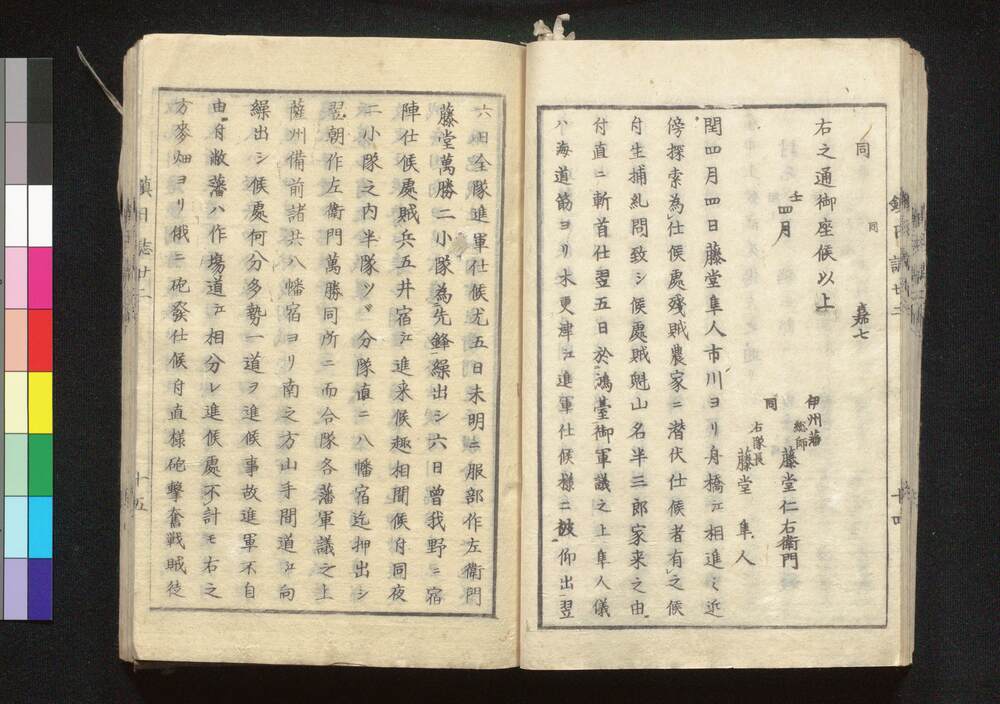 同 同 嘉七
右之通御座候以上
壬四月
伊州藩
総師
藤堂仁右衛門
同
右隊長
藤堂隼人
閏四月四日藤堂隼人市川ヨリ舟橋江相進ミ近
傍探索為仕候處残賊農家ニ潜伏仕候者有之候
付生捕糺問致シ候處賊魁山名半三郎家来之由
付直ニ斬首仕翌五日於鴻臺御軍議之上隼人儀
ハ海道筋ヨリ木更津江進軍仕候様ニ被仰出翌
十四
六日全隊進軍仕候尤五日未明ニ服部作左衛門
藤堂萬勝二小隊為先鋒繰出シ六日曽我野ニ宿
陣仕候處賊兵五井宿江進来候趣相聞候付同夜
二小隊之内半隊ツヽ分隊直ニ八幡宿迄押出シ
翌朝作左衛門萬勝同所ニ而合隊各藩軍議之上
薩州備前諸共八幡宿ヨリ南之方山手間道江向
繰出シ候處何分多勢一道ヲ進候事故進軍不自
由付敝藩ハ作場道江相分レ進候處不計モ右之
方麥畑ヨリ俄ニ砲發仕候付直様砲撃奮戦賊徒
鎮日誌廿二
十五